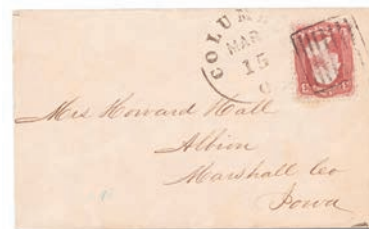 COLUM
MAR
15
Mrs Howard Hall
Albion
Marshall Co
Iowa